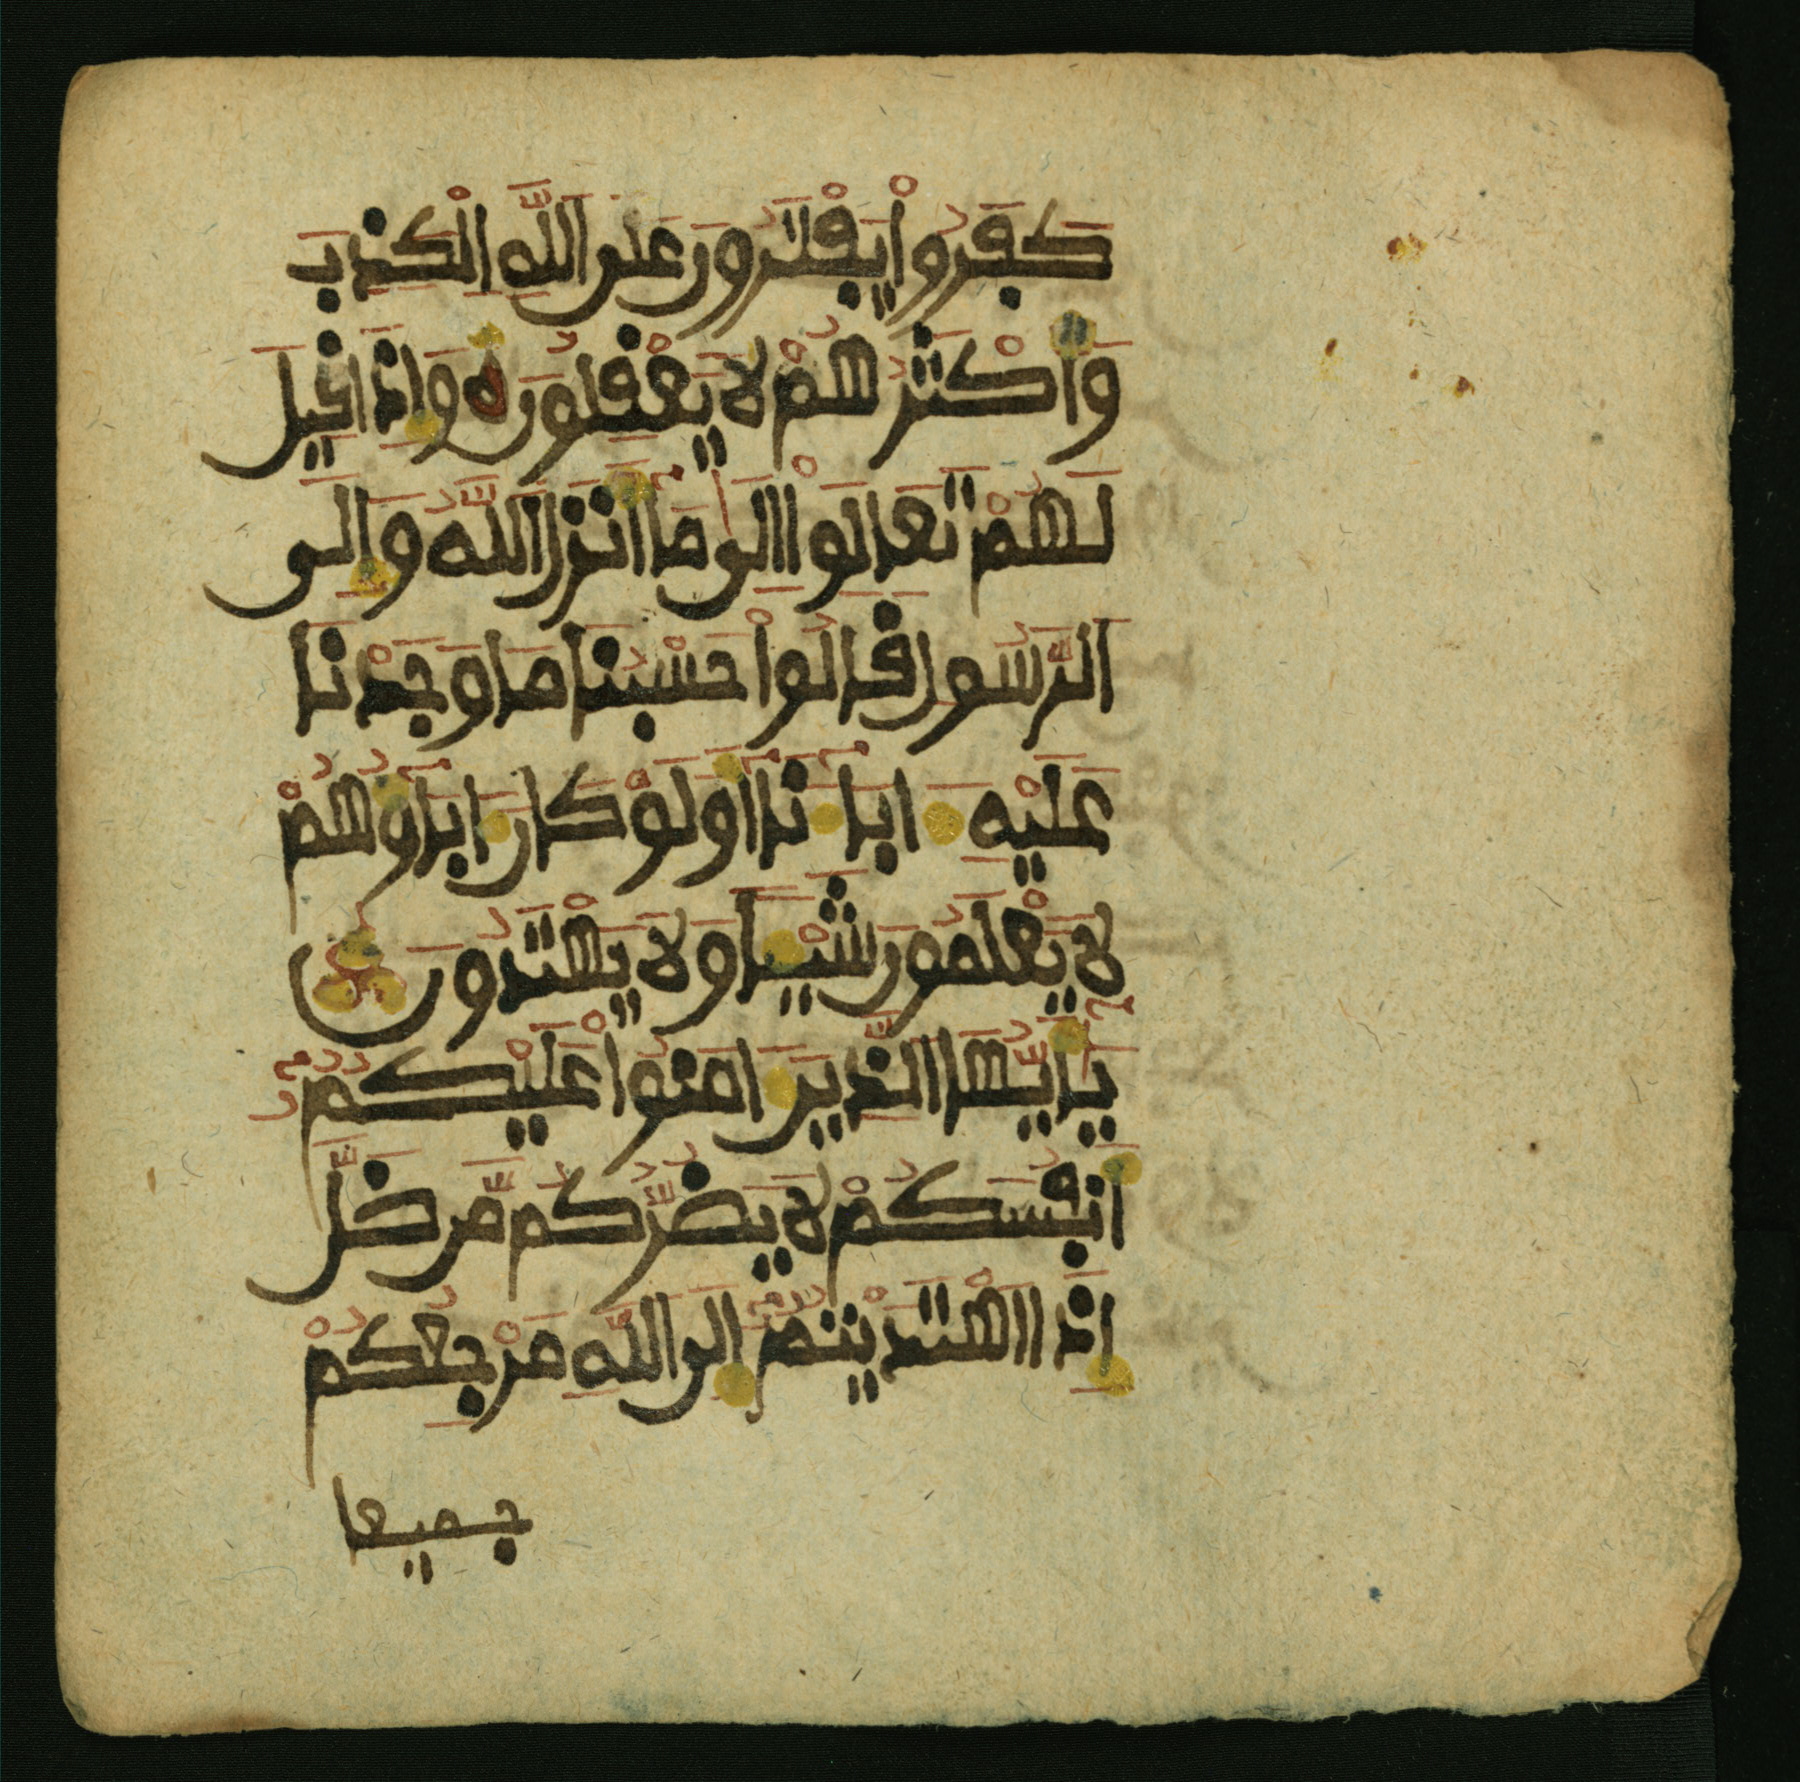 كَفَرُواْ يَفْتَرُونَ عَلَى اللَّهِ الْكَذِبَ
وَأَكْثَرُهُمْ لَا يَعْقِلُونَ ه وَإِذَا قِيلَ
لَهُمْ تَعَالَوْاْ إِلَىٰ مَا أَنزَلَ اللَّهُ وَإِلَى
الرَّسُولِ قَالُواْ حَسْبُنَا مَا وَجَدْنَا
عَلَيْهِ ءَابَاءَنَا أَوَلَوْ كَانَ ءَابَاؤُهُمْ
لَا يَعْلَمُونَ شَيْئًا وَلَا يَهْتَدُونَ
يَٰأَيُّهَا الَّذِينَ ءَامَنُواْ عَلَيْكُمُ
أَنفُسَكُمْ لَا يَضُرُّكُم مَّن ضَلَّ
إِذَا اهْتَدَيْتُمُ إِلَى اللَّهِ مَرْجِعُكُمْ
جميعا